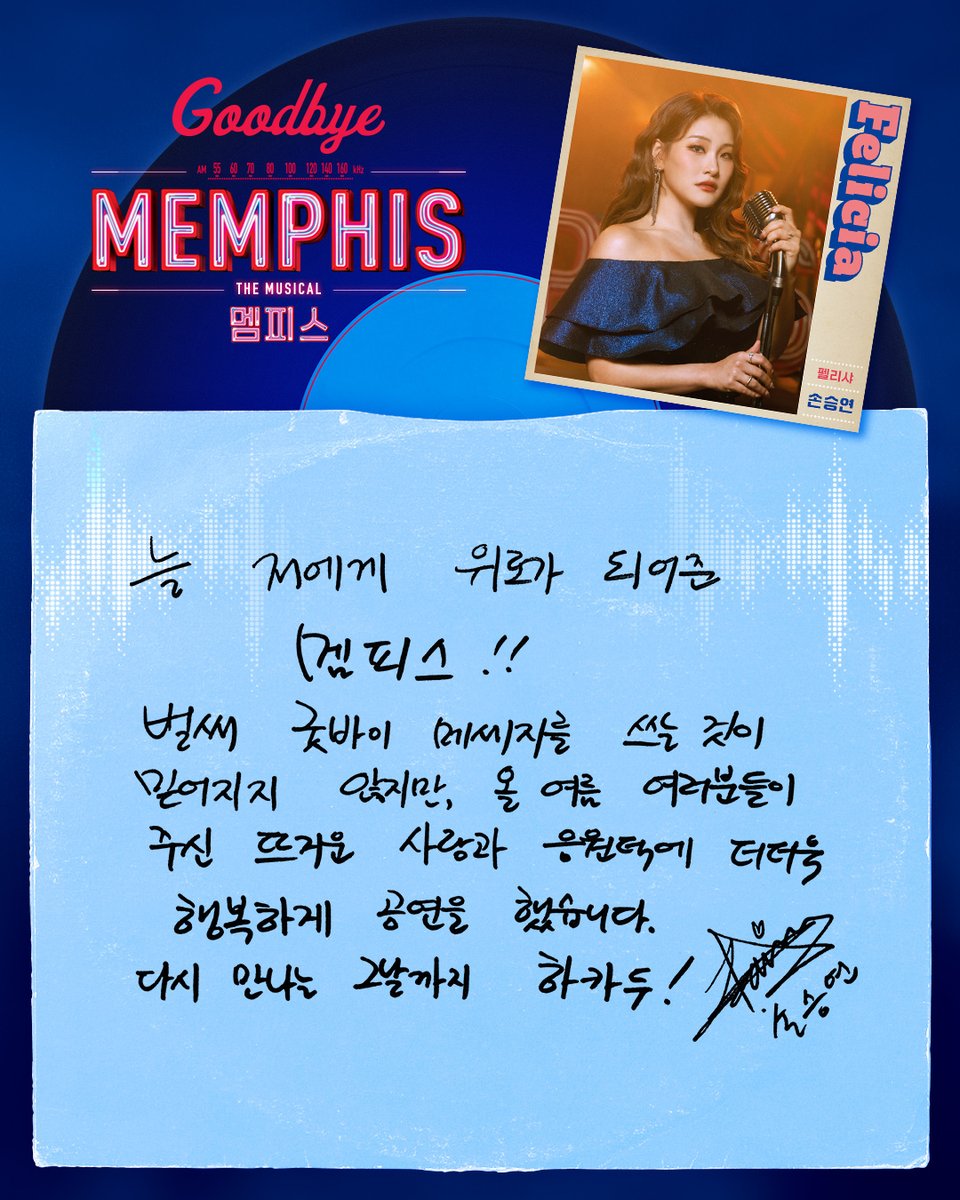 Goodbye
AM 55 60 70 80 100 120 140 160 kHz
MEMPHIS
THE MUSICAL
멤피스
Felicia
펠리샤
손승연
늘 저에게 위로가 되어준
멤피스!!
벌써 굿바이 메세지를 쓰는 것이
믿어지지 않지만, 올 여름 여러분들이
주신 뜨거운 사랑과 응원덕에 더더욱
행복하게 공연을 했습니다.
다시 만나는 그날까지 하카두!
손승연